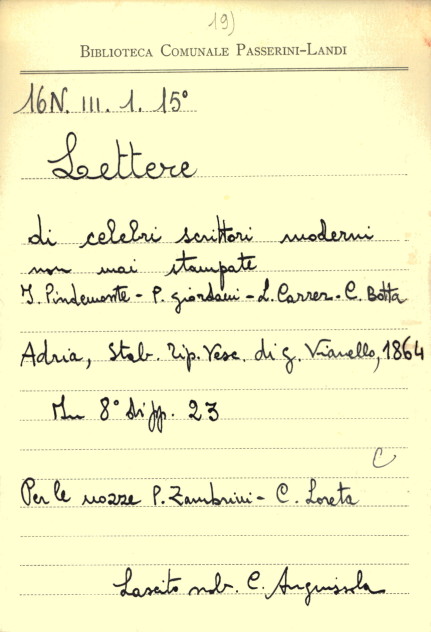 19)
BIBLIOTECA COMUNALE PASSERINI-LANDI
16N. III. 1. 15°
Lettere
di celebri scrittori moderni
non mai stampate
I. Pindemonte - P. Giordani - L. Carrer - C. Botta
Adria, Stab. Tip. Vesc. di G. Vianello, 1864
In 8° di pp. 23
C
Per le nozze P. Zambrini - C. Loreta
Lascito nob. C. Anguissola